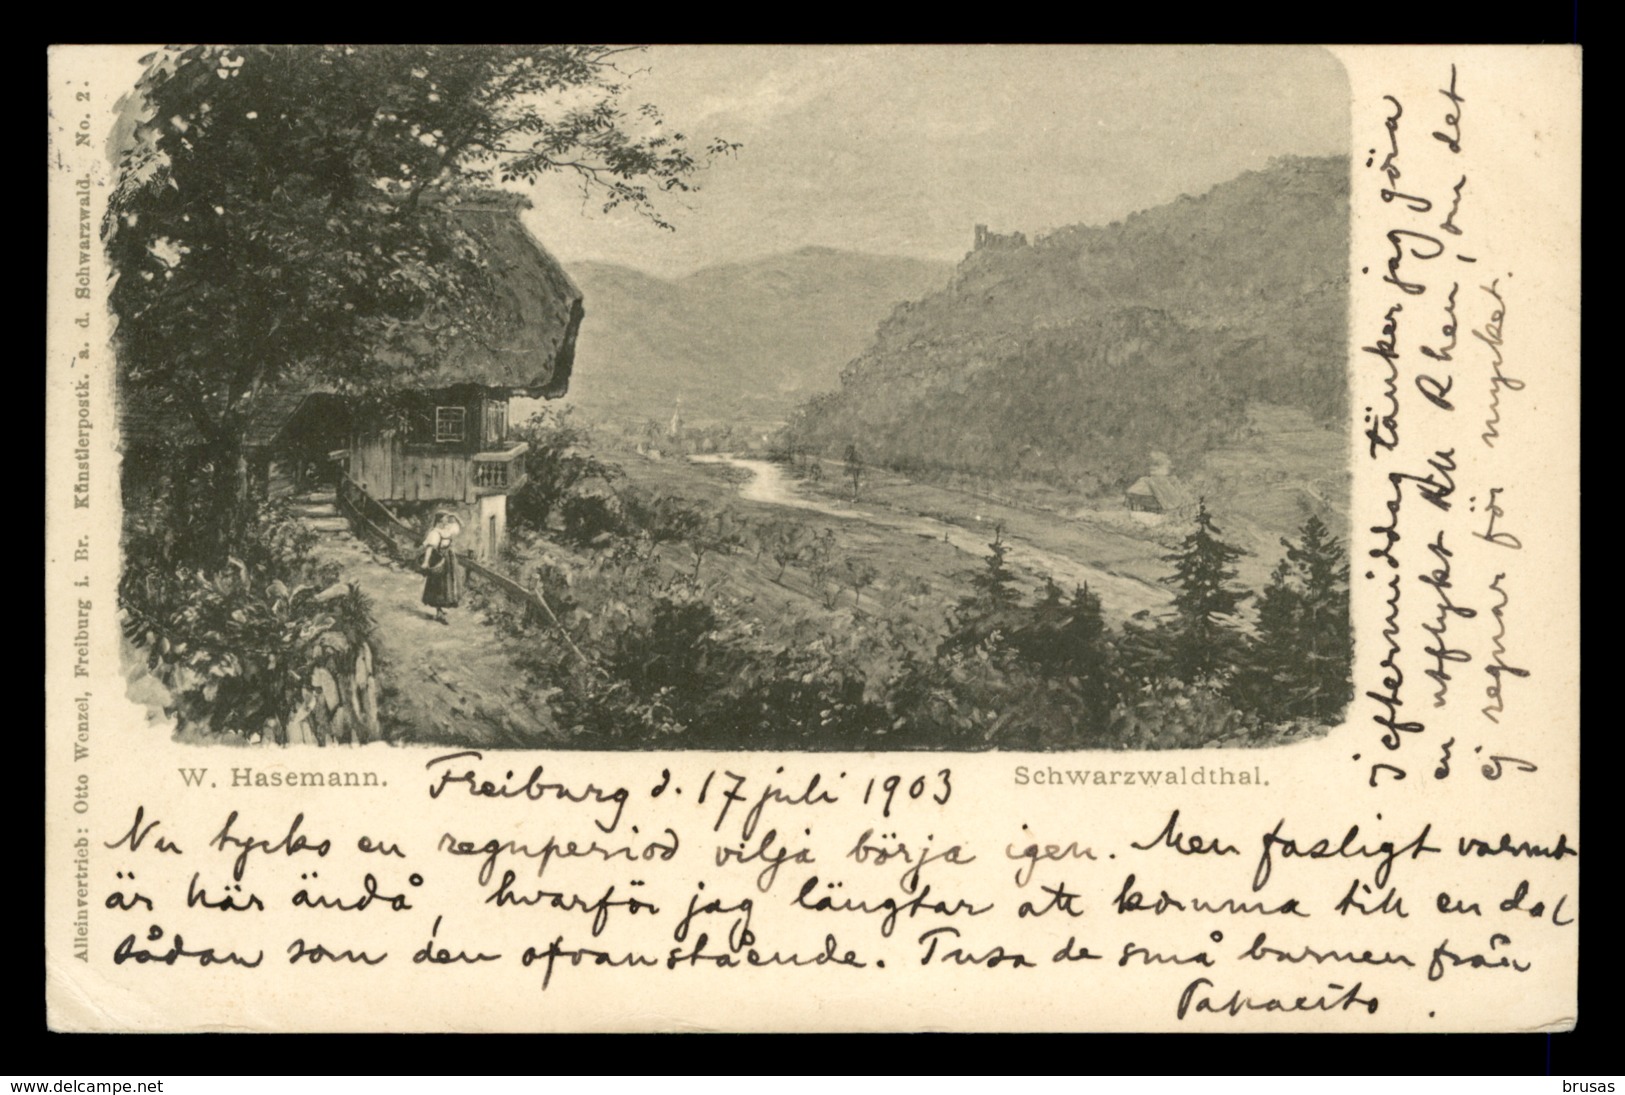 Alleinvertrieb: Otto Wenzel, Freiburg i. Br. Künstlerpostk. a. d. Schwarzwald. No. 2.
W. Hasemann.
Schwarzwaldthal.
Freiburg d. 17 juli 1903
Nu tycks en regnperiod vilja börja igen. Men fasligt varmt
är här ändå, hvarför jag längtar att komma till en dal
sådan som den ofvanstående. Pussa de små barnen från
I eftermiddag tänker jag göra
en utflykt till Rhen, om det
ej regnar för mycket.
www.delcampe.net
brusas